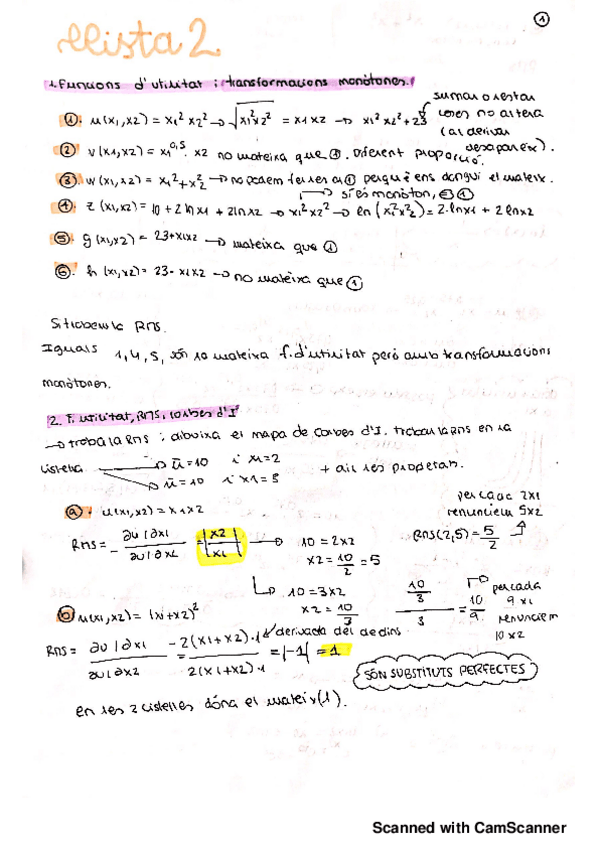 ①
Llista 2
1. Funcions d'utilitat i transformacions monòtones.
①. u(x1,x2) = x1² x2² → √x1²x2² = x1x2 → x1²x2²+23
sumar o restar
coses no altera
(al derivar
desapareix).
② v(x1,x2) = x1^0,5 · x2 no mateixa que ①. Diferent proporció.
③. w(x1,x2) = x1²+x2² → no podem fer res a ① perquè ens dongui el mateix.
sí és monòton,
④. z(x1,x2) = 10 + 2lnx1 + 2lnx2 → x1²x2² → ln(x1²x2²) = 2·lnx1 + 2lnx2
⑤. g(x1,x2) = 23+x1x2 → mateixa que ①
⑥. h(x1,x2) = 23-x1x2 → no mateixa que ①
Si trobem la RMS.
Iguals 1,4,5, són la mateixa f. d'utilitat però amb transformacions
monòtones.
2. F. utilitat, RMS, i corbes d'I
→ troba la RMS i dibuixa el mapa de corbes d'I. Troba la RMS en la
cistella → ū=10 i x1=2
→ ū=10 i x1=3
ⓐ. u(x1,x2) = x1x2
RMS = - ∂u/∂x1 / ∂u/∂x2 = |x2/x1| → 10 = 2x2
x2 = 10/2 = 5
RMS(2,5) = 5/2
renunciem 5x2
↳ 10 = 3x2
x2 = 10/3
10/3 / 3 = 10/9
per cada
9 x1
renunciem
10 x2
ⓑ u(x1,x2) = (x1+x2)²
RMS = ∂u/∂x1 / ∂u/∂x2 = -2(x1+x2)·1 / 2(x1+x2)·1 = |-1| = 1
derivada del dedins
SÓN SUBSTITUTS PERFECTES
en les 2 cistelles dóna el mateix (1).
Scanned with CamScanner